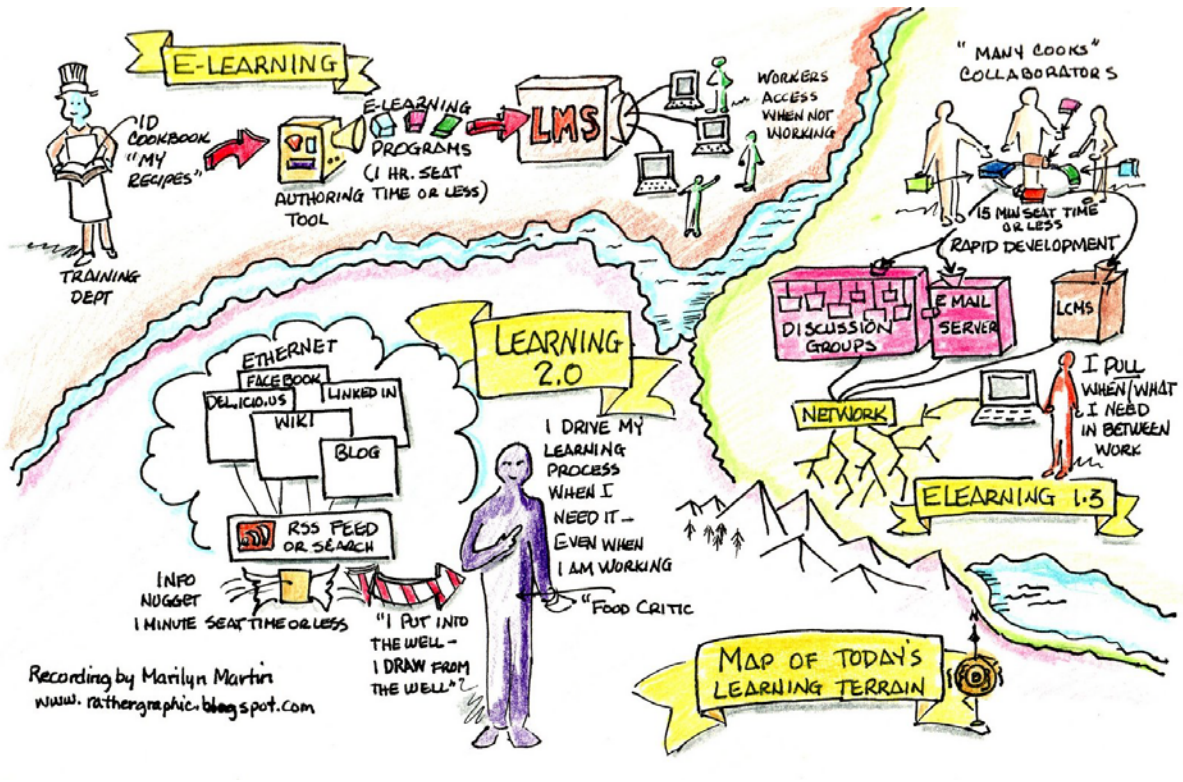 E-LEARNING
ID
COOKBOOK
"MY
RECIPES"
TRAINING
DEPT
AUTHORING
TOOL
E-LEARNING
PROGRAMS
(1 HR. SEAT
TIME OR LESS)
LMS
WORKERS
ACCESS
WHEN NOT
WORKING
"MANY COOKS"
COLLABORATORS
15 MIN SEAT TIME
OR LESS
RAPID DEVELOPMENT
DISCUSSION
GROUPS
E MAIL
SERVER
LCMS
NETWORK
I PULL
WHEN/WHAT
I NEED
IN BETWEEN
WORK
ELEARNING 1.3
LEARNING
2.0
ETHERNET
FACEBOOK
DEL.ICIO.US
LINKED IN
WIKI
BLOG
RSS FEED
OR SEARCH
INFO
NUGGET
1 MINUTE SEAT TIME OR LESS
"I PUT INTO
THE WELL -
I DRAW FROM
THE WELL"?
I DRIVE MY
LEARNING
PROCESS
WHEN I
NEED IT -
EVEN WHEN
I AM WORKING
"FOOD CRITIC
MAP OF TODAY'S
LEARNING TERRAIN
N
Recording by Marilyn Martin
www.rathergraphic.blogspot.com